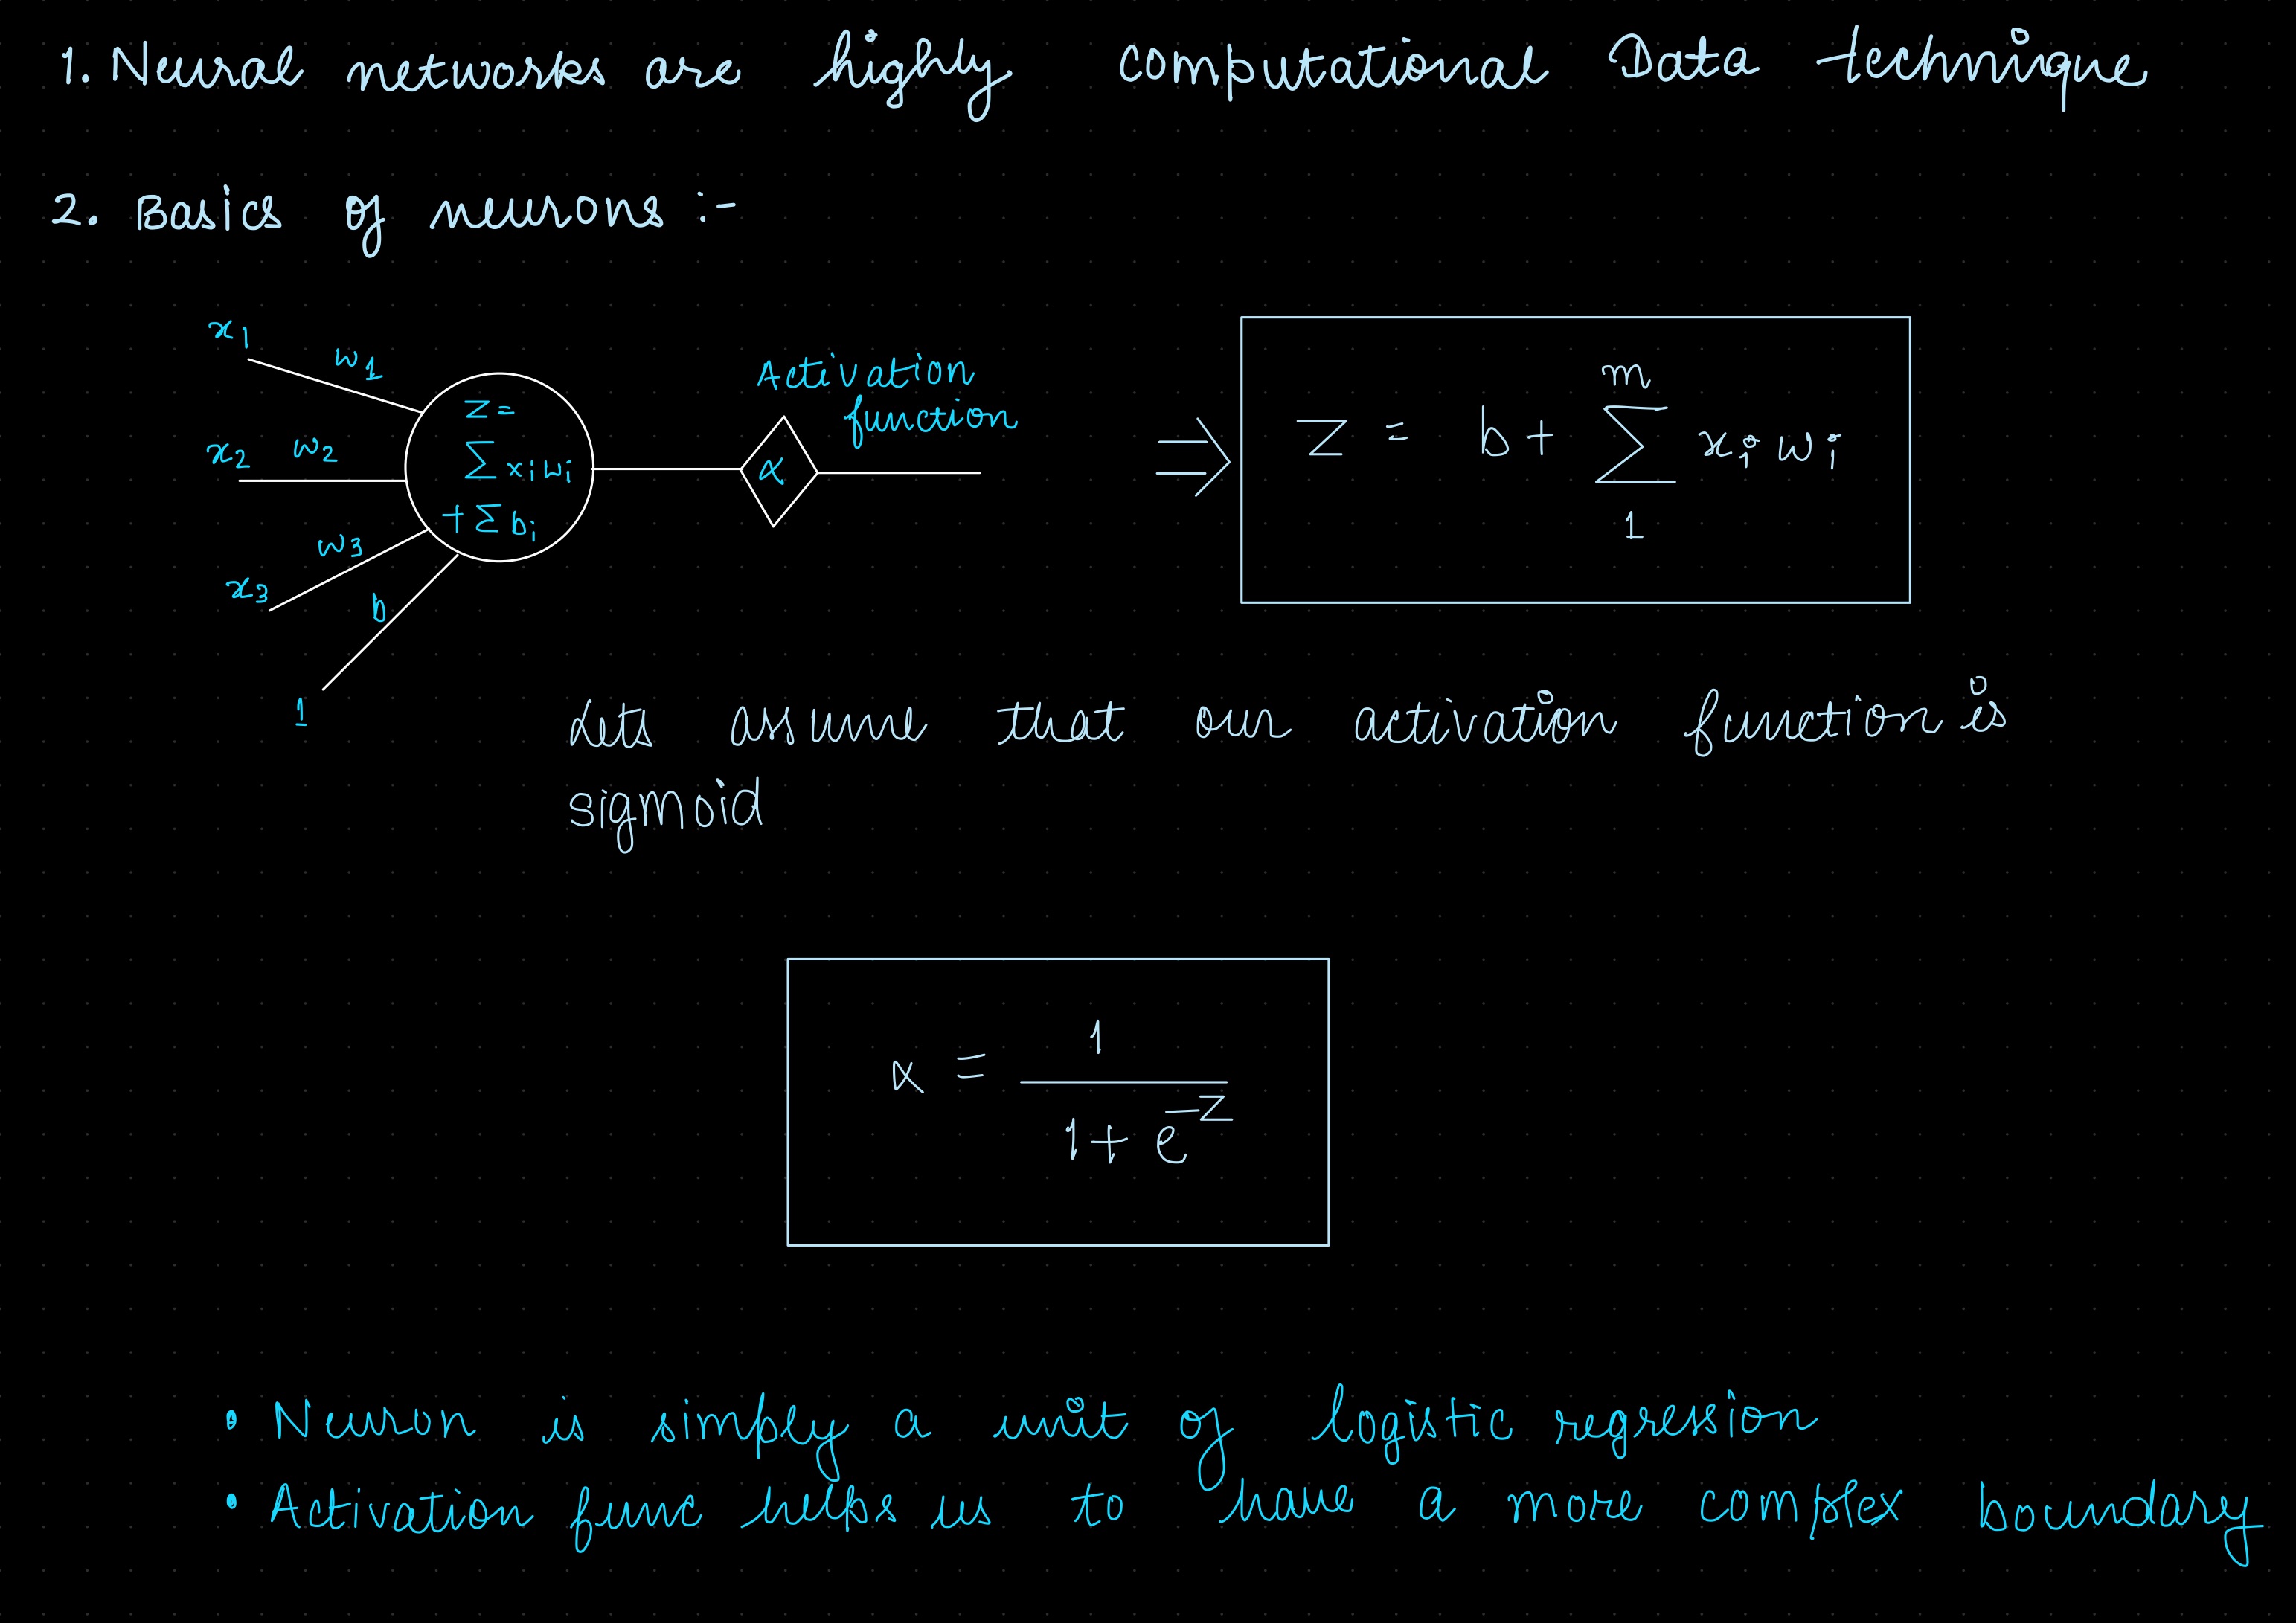 1. Neural networks are highly computational Data technique
2. Basics of neurons :-
x1
w1
x2 w2
w3
x3
b
1
Z =
∑ xiwi
+ ∑ bi
α
Activation
function
⇒ Z = b + m∑1 xi wi
Lets assume that our activation function is
sigmoid
α = 1 / 1 + e^-Z
• Neuron is simply a unit of logistic regression
• Activation func helps us to have a more complex boundary